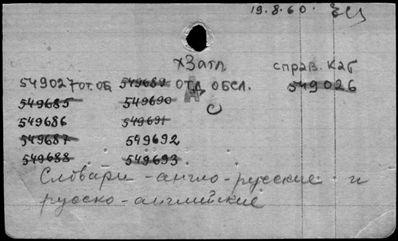 19.8.60. ЕЦ
хЗатл справ. каб
549027 от. об 549689 отд обсл. 549026
549685 549690 А
549686 549691 С
549687 549692
549688 549693.
Словари - англо-русские и
русско-английские